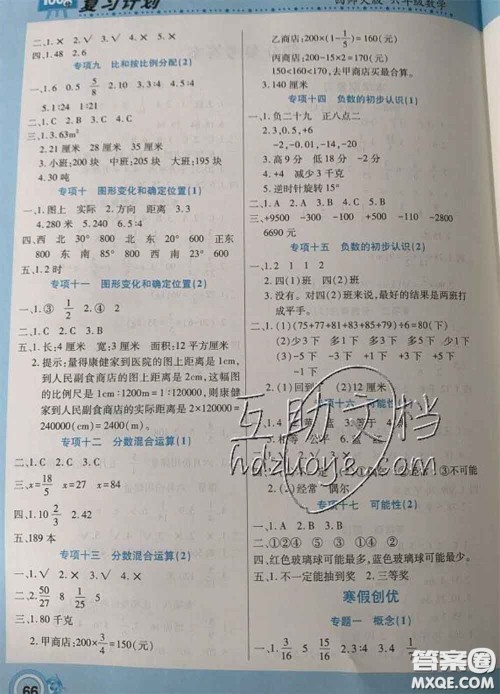 复习计划
西师大版 六年级数学
二、1.× 2.√ 3.× 4.√ 5.×
四、1.48 2.6
专项九 比和按比例分配(2)
一、1.6 0.5 5/8
5.1∶24 6.1∶21
二、1.C 2.B 3.C 4.C
三、1.3.63m²
2.21厘米 28厘米 35厘米
3.小班:200块 中班:205块 大班:215块
4.30吨
专项十 图形变化和确定位置(1)
一、1.图上 实际 2.方向 距离 3.3
4.280 5.240 6.5∶4
四、西 北 30° 800 北 东 20° 600 正东
800 东 南 85° 800 西 南 23° 600
五、1.2时
专项十一 图形变化和确定位置(2)
一、1.③ 1/2 2.④ 2
五、1.长:4厘米 宽:3厘米 面积:12平方厘米
2.提示:量得康健家到医院的图上距离是1cm,
到人民副食商店的图上距离是2cm,这幅图
的比例尺是1cm∶1200m=1∶120000,康健家
到人民副食商店的实际距离是2×120000=
240000(cm)=2400(m)
专项十二 分数混合运算(1)
二、1.C 2.C 3.C
三、x=18/5 x=27 x=84
四、1.10 2/3
五、189本
专项十三 分数混合运算(2)
二、1.√ 2.√ 3.√ 4.× 5.×
三、50/27 8 1/25 5
五、1.
2.甲商店:200×3/4=150(元)
乙商店:200×(1-1/5)=160(元)
丙商店:200-15×2=170(元)
150<160<170,去甲商店买最合算。
3.140厘米
专项十四 负数的初步认识(1)
一、1.负二十九 正八点二
2.3,0.5,+6
-2,-0.01,-14,-20
3.高9分 低18分 -4
4.+20 减少3千克
5.逆时针旋转15°
三、+9500 -600 -1100 -310 -800
6690元
专项十五 负数的初步认识(2)
一、1.2 1 1 2
2.四(1)班 四(2)班
3.没有。对四(2)班来说,最好的结果是两班打
成平手。
二、1.(1)(75+77+81+83+85+79)÷6=80(下)
(2)少5下 少3下 多1下 多3下
多5下 少1下
2.(1)回到了 (2)12厘米
专项十六 可能性(1)
三、1.①可能 ②一定 ③不可能
2.(一)经常 偶尔
专项十七 可能性(2)
二、1.A 2.B 3.B
三、①②④ ⑤ ②④ ①③
四、红色玻璃球可能最多,蓝色玻璃球可能最少。
五、1.不一定能抽到奖 2.三等奖
寒假创优
专题一 概念(1)
一、1.3/16 5 15/16 2.4 3.4 1/7
66
互助文档
hdzuoye.com
答案圈
MXQE.COM